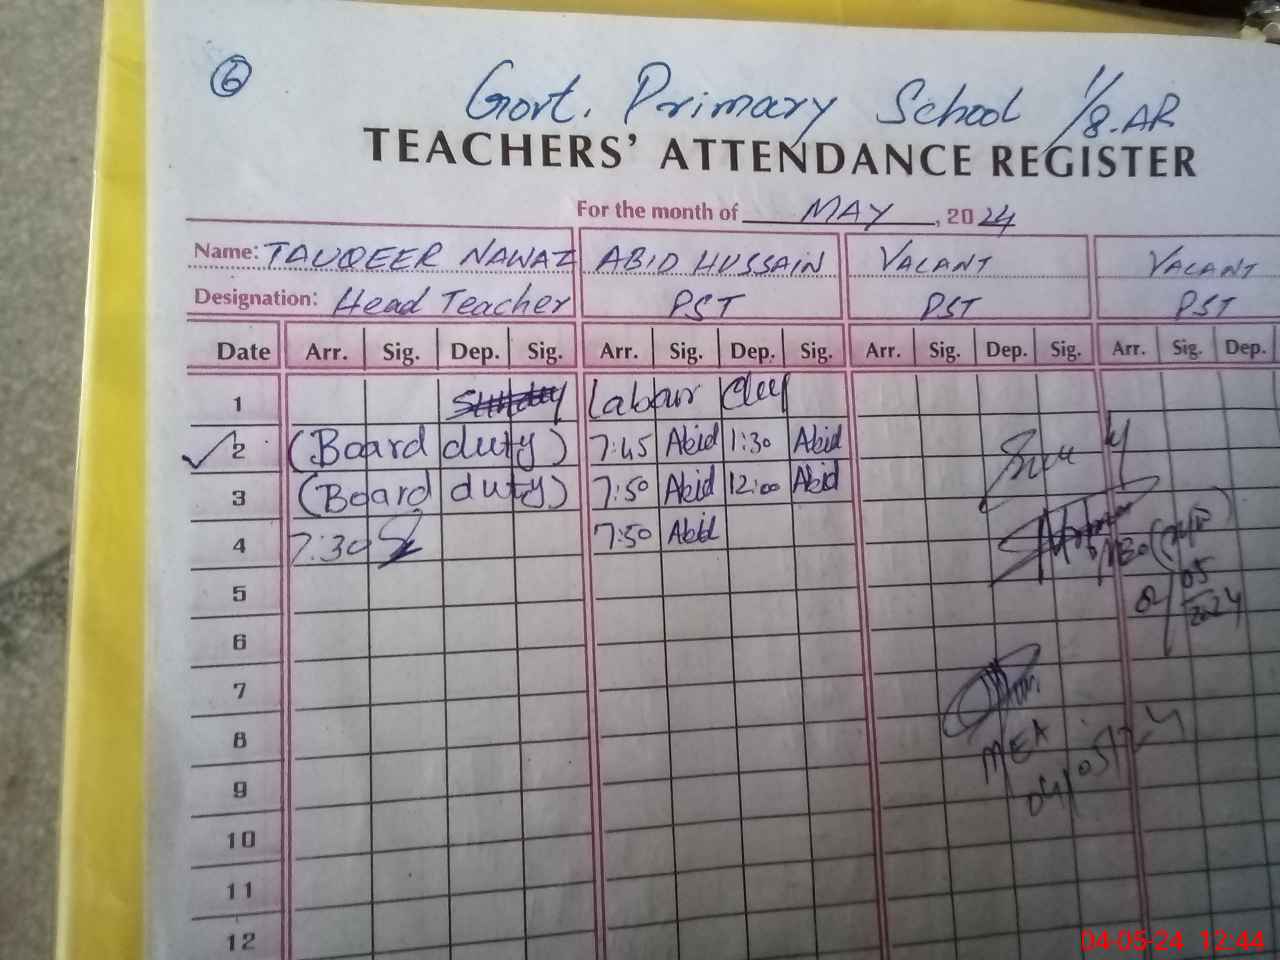 6
Govt. Primary School 1/8.AR
TEACHERS' ATTENDANCE REGISTER
For the month of MAY, 2024
Name: TAUQEER NAWAZ ABID HUSSAIN VACANT VACANT
Designation: Head Teacher PST PST PST
Date Arr. Sig. Dep. Sig. Arr. Sig. Dep. Sig. Arr. Sig. Dep. Sig. Arr. Sig. Dep.
1 Sunday Labour day
2 (Board duty) 7:45 Abid 1:30 Abid
3 (Board duty) 7:50 Abid 12:00 Abid
4 7:30 7:50 Abid
5
6
7
8
9
10
11
12
05
2024
MEA
04/05/24
04-05-24 12:44